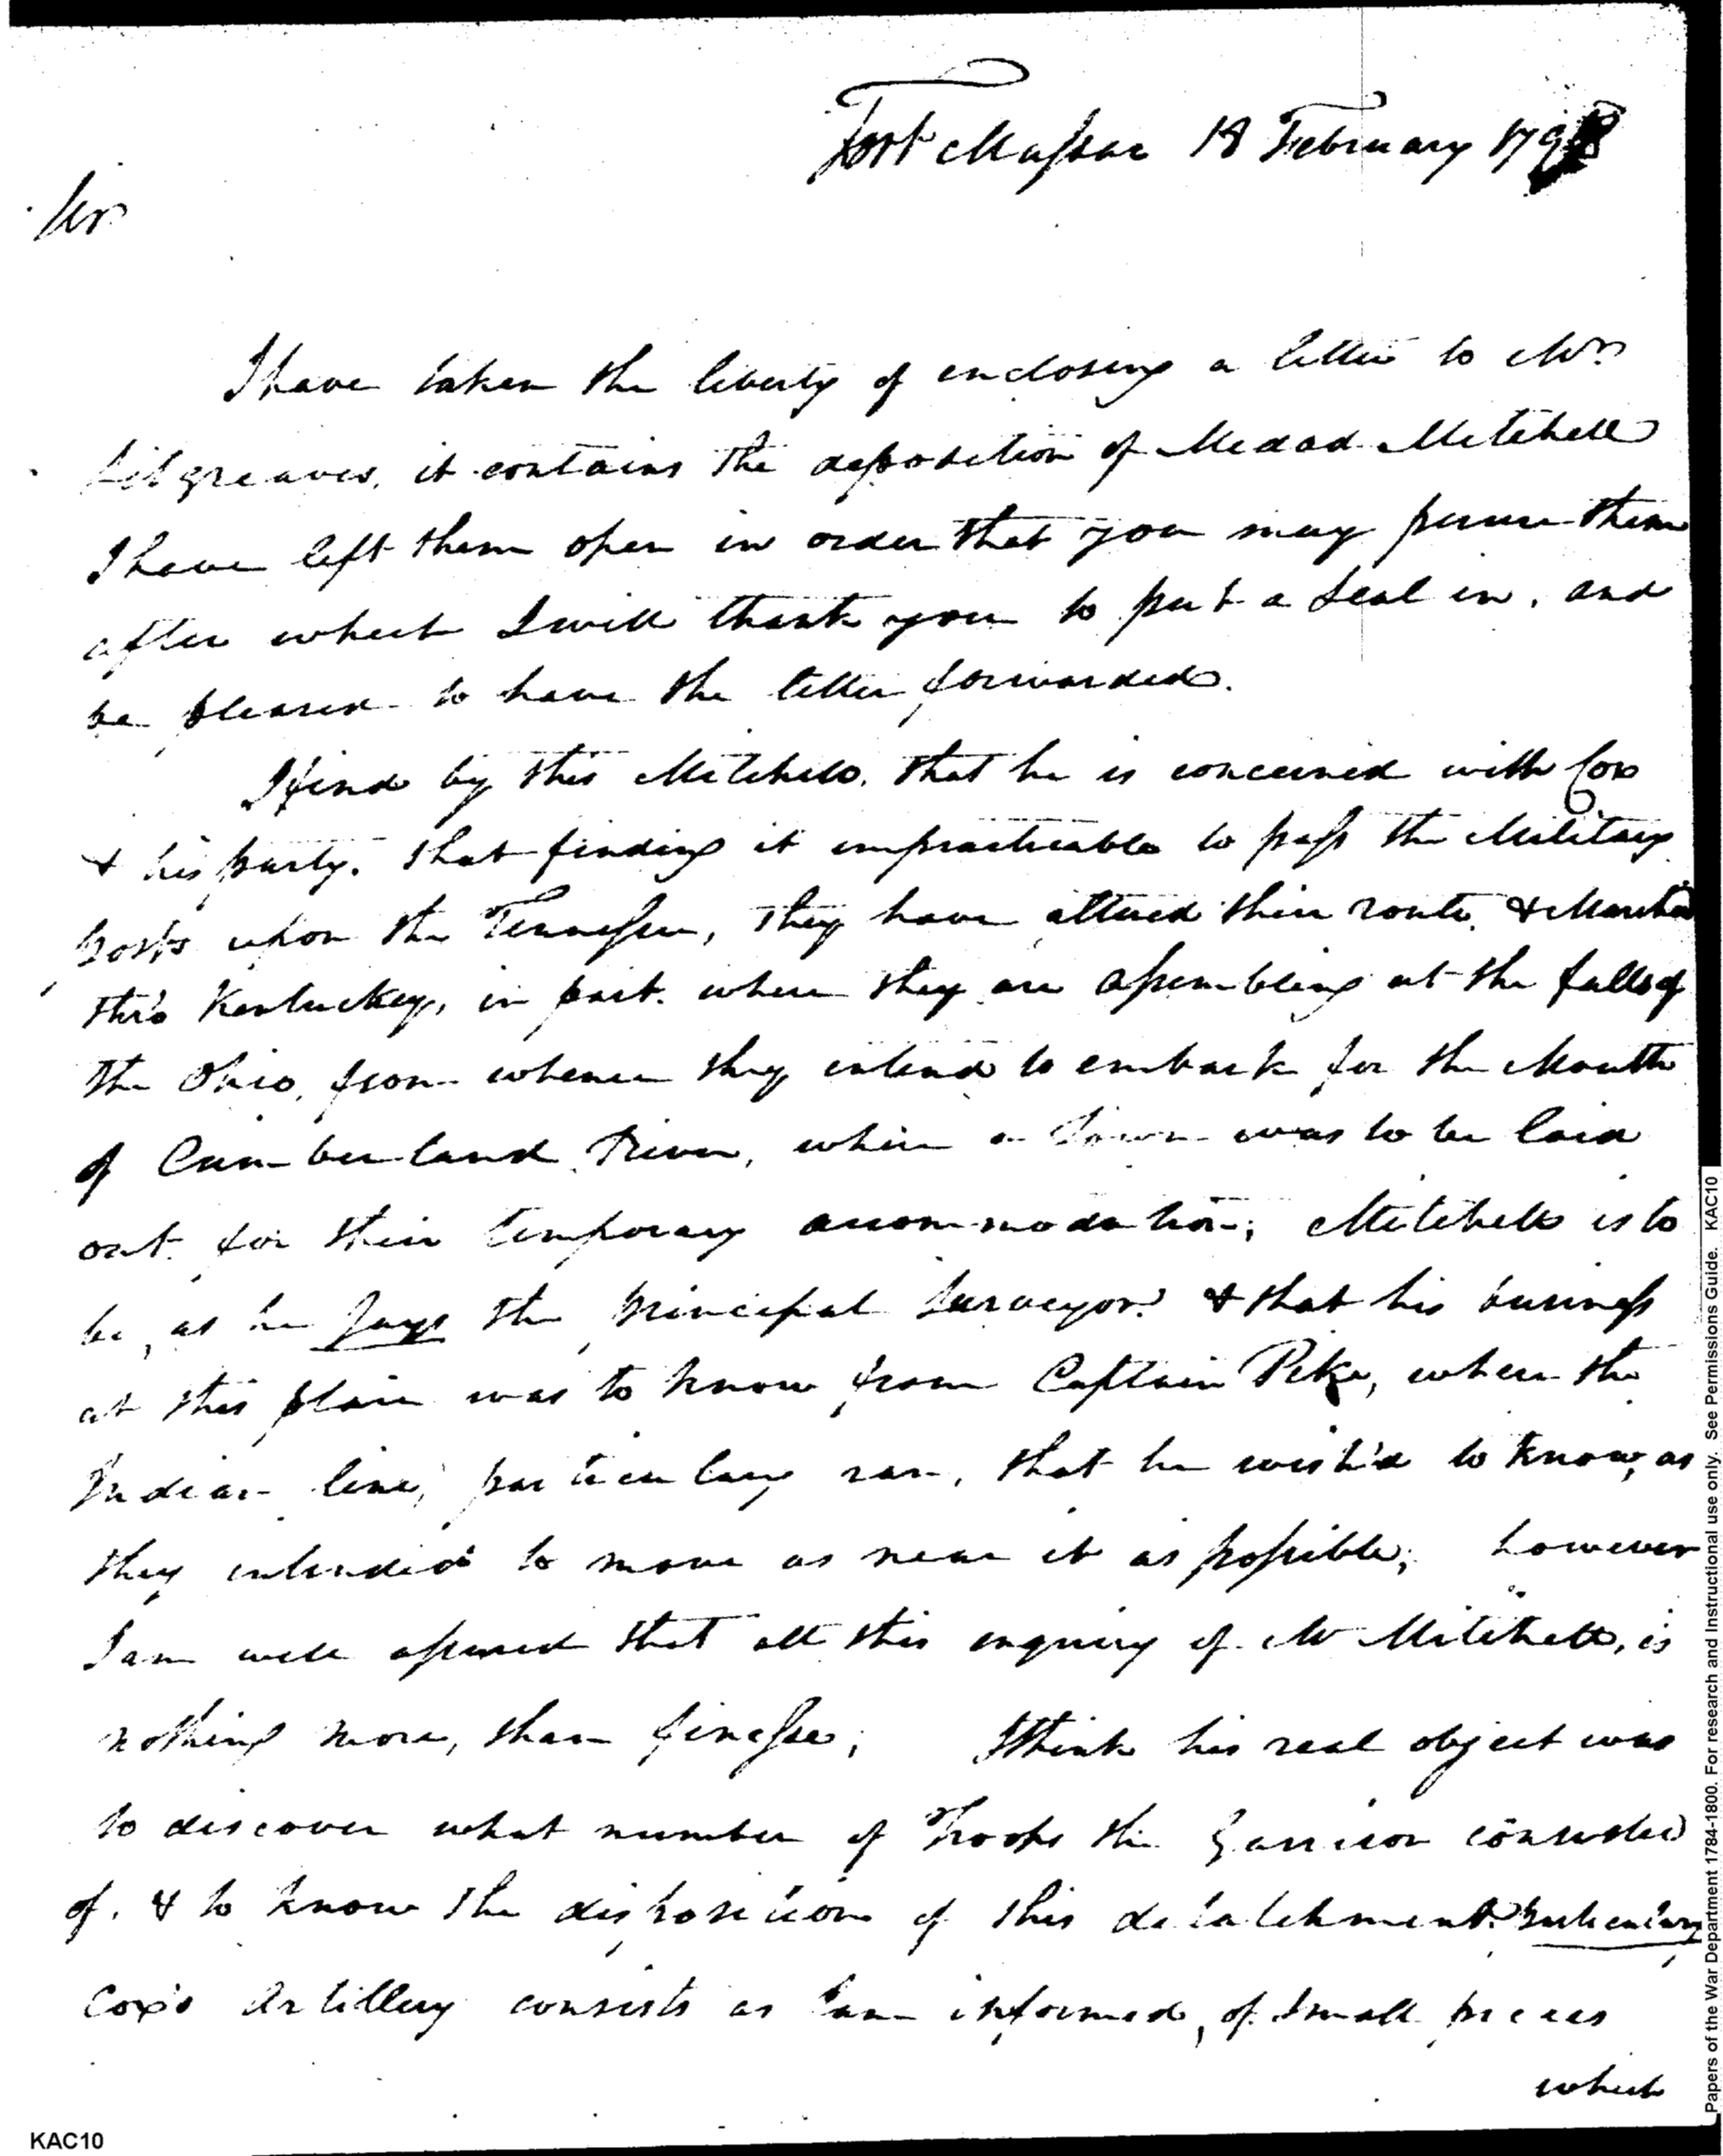 Fort Massac 18 February 179
Sir
I have taken the liberty of enclosing a letter to Mr
Sitgreaves, it contains the deposition of Medad Mitchell
I have left them open in order that you may peruse them
after which I will thank you to put a Seal in, and
be pleased to have the letter forwarded.
I find by this Mitchell, that he is concerned with Cox
& his party. that finding it impracticable to pass the Military
posts upon the Tennessee, they have altered their route, & Marched
thro Kentuckey, in part. where they are assembling at the falls of
the Ohio, from whence they intend to embark for the Mouth
of Cumberland River, where a Town was to be laid
out for their temporary accommodation; Mitchell is to
be, as he Says the principal Surveyor. & that his business
at this place was to know from Captain Pike, where the
Indian line, particulary ran, that he wish'd to know, as
they intended to move as near it as possible; however
I am well assured that all this enquiry of Mr Mitchell, is
nothing more, than finesse; I think his real object was
to discover what number of Troops the Garrison consisted
of. & to know the disposition of this detatchment particulary
Cox's Artillery consists as I am informed, of Small pieces
which
KAC10
Papers of the War Department 1784-1800. For research and Instructional use only. See Permissions Guide. KAC10